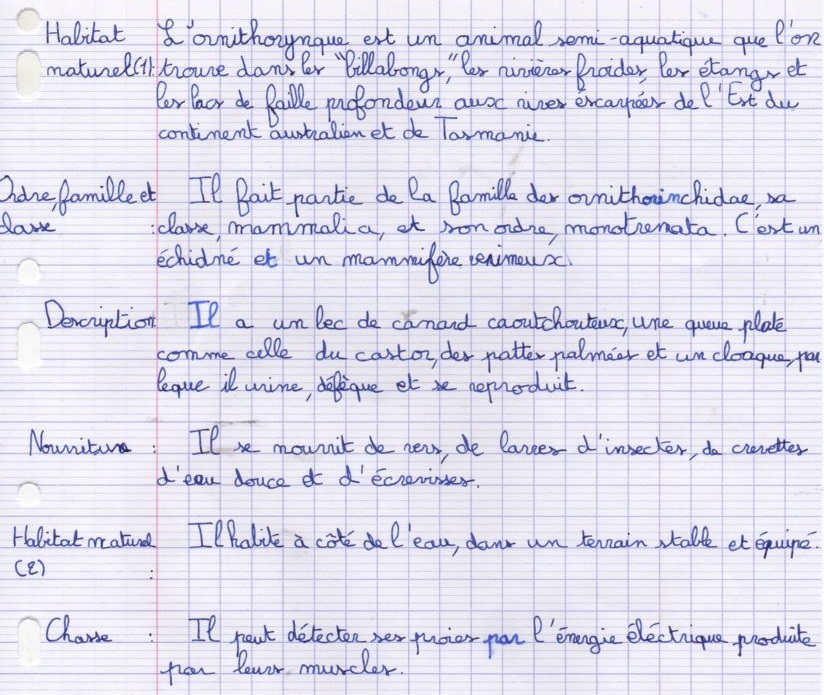 Habitat L'ornithorynque est un animal semi-aquatique que l'on
naturel(1): trouve dans les "billabongs", les rivières froides, les étangs et
les lacs de faille profondeur aux rives éscarpées de l'Est du
continent australien et de Tasmanie.
Ordre, famille et Il fait partie de la famille des ornithorinchidae, sa
classe : classe, mammalia, et son ordre, monotremata. C'est un
échidné et un mammifère venimeux.
Description Il a un bec de canard caoutchouteux, une queue plate
comme celle du castor, des pattes palmées et un cloaque, par
leque il urine, défèque et se reproduit.
Nourriture : Il se nourrit de vers, de larves d'insectes, de crevettes
d'eau douce et d'écrevisses.
Habitat naturel Il habite à côté de l'eau, dans un terrain stable et équipé.
(2) :
Chasse : Il peut détecter ses proies par l'énergie éléctrique produite
par leurs muscles.